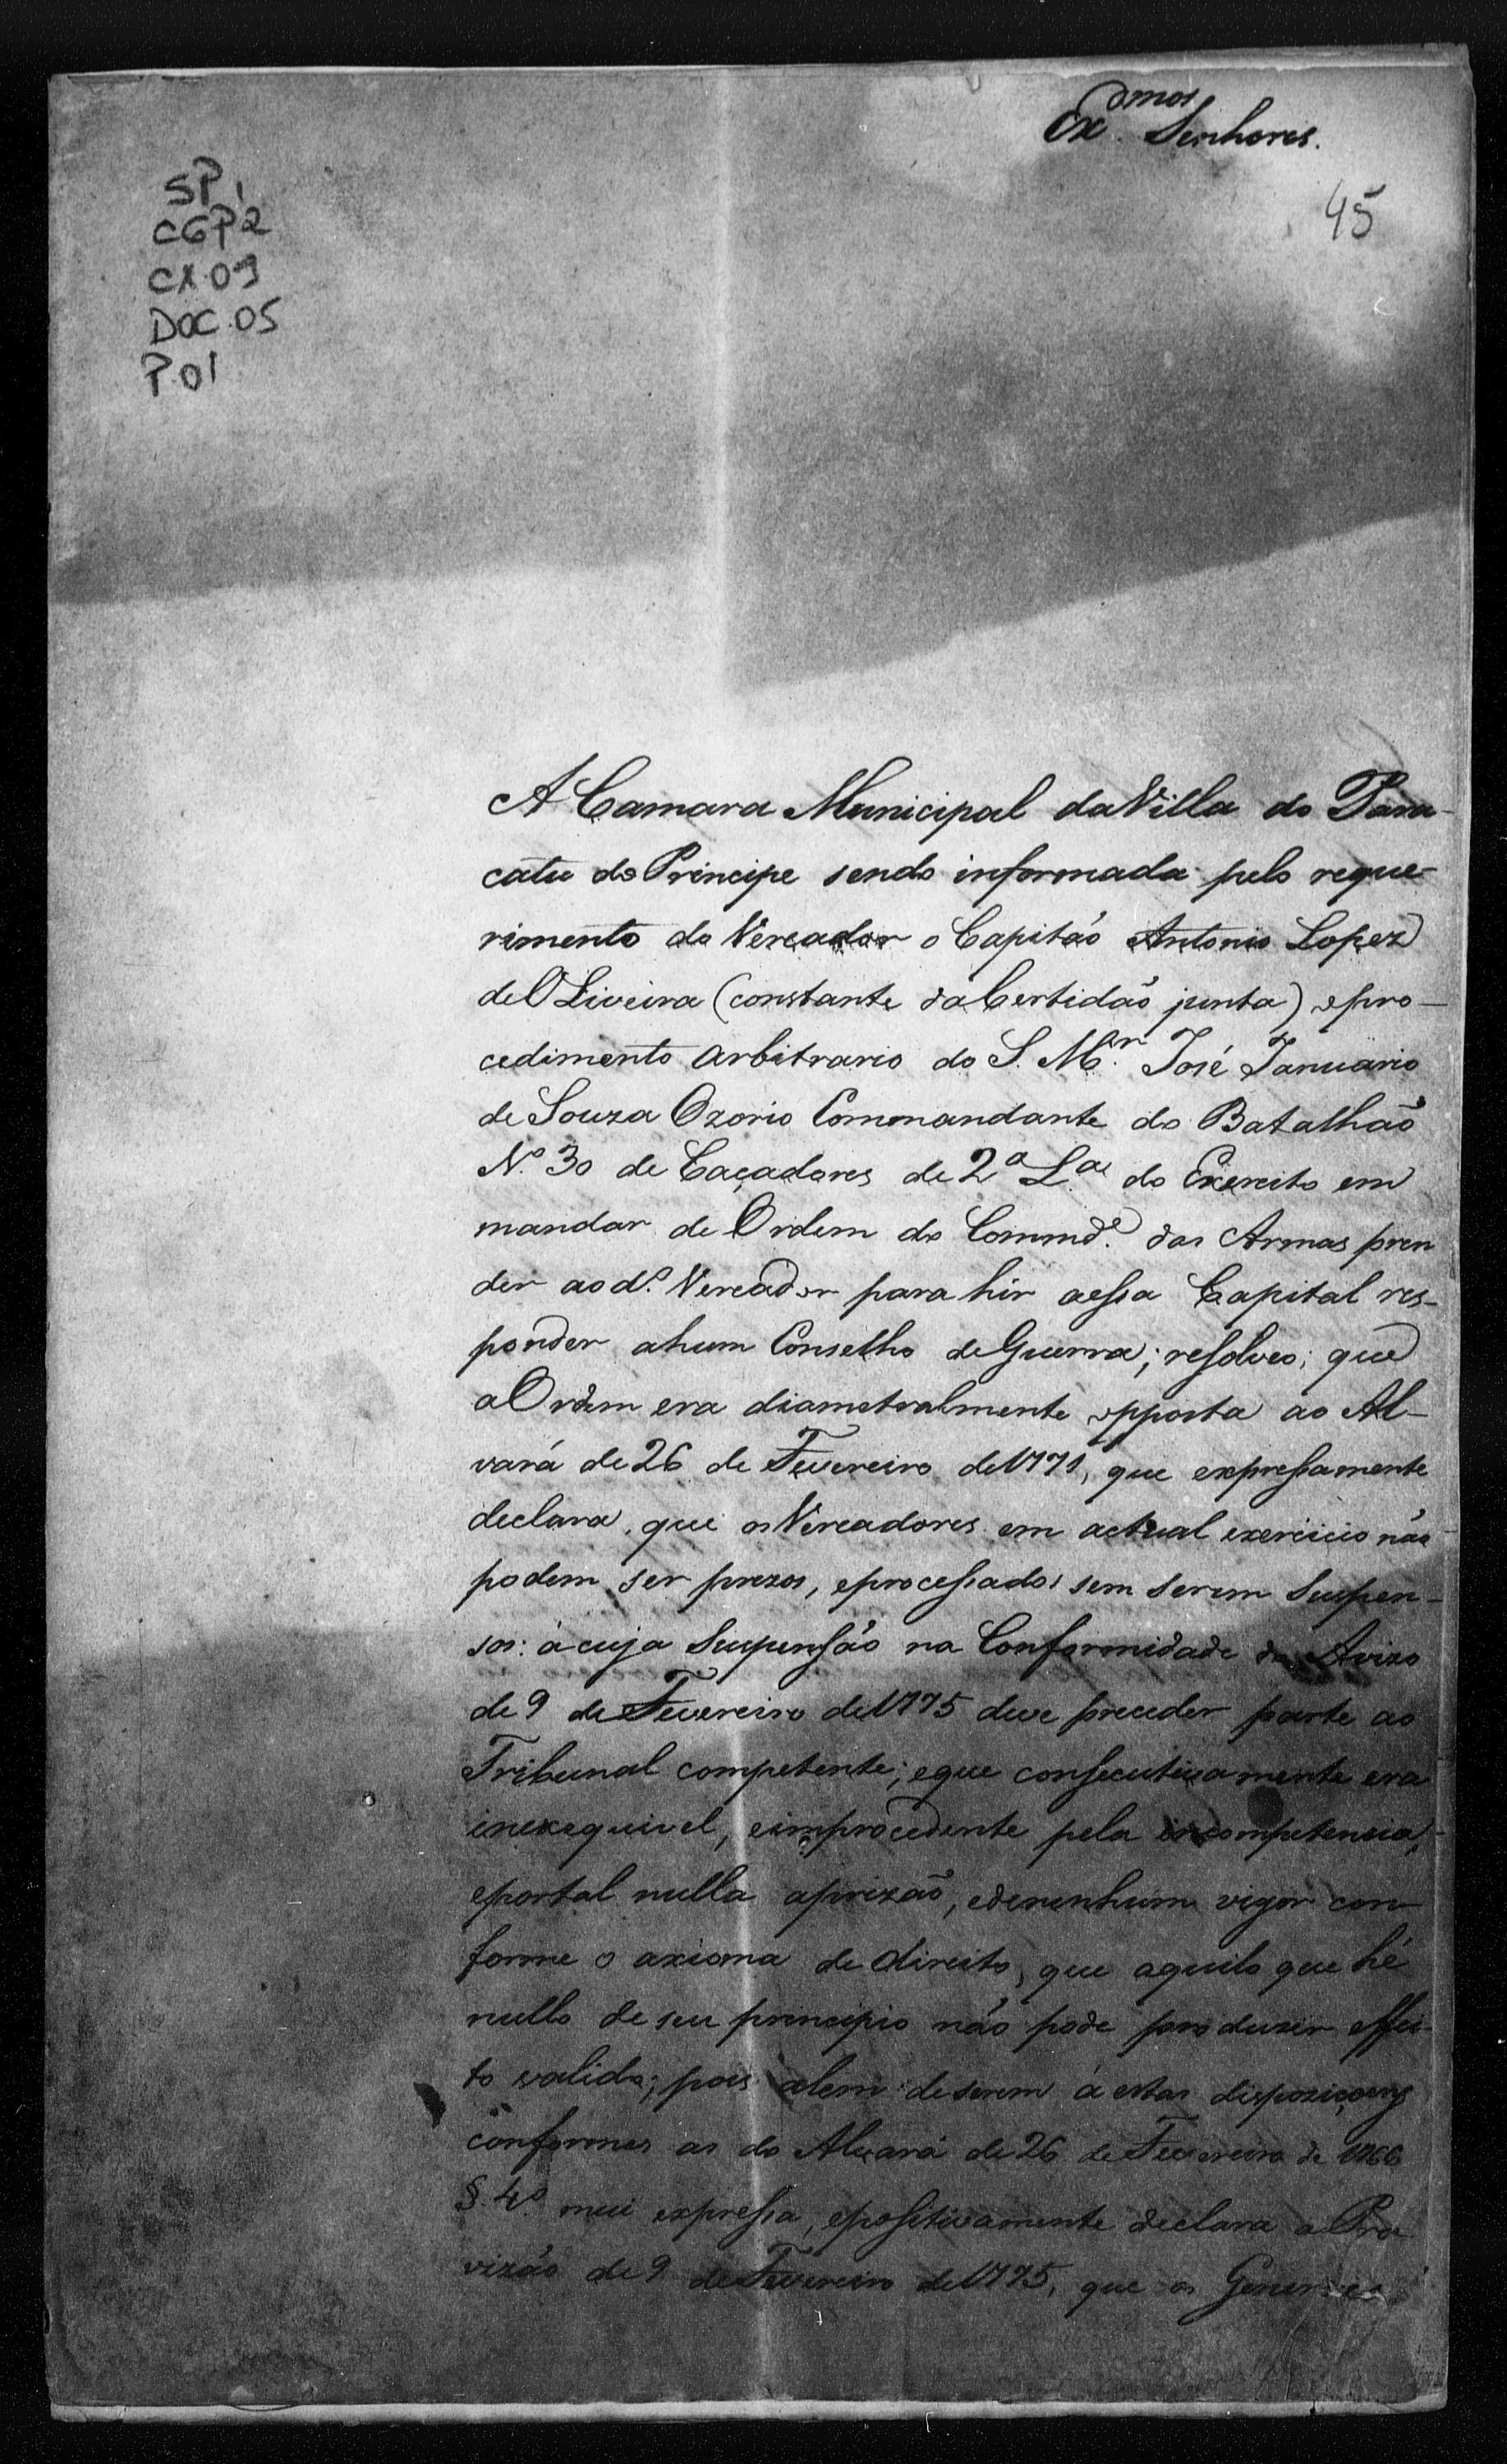 Ex.mos Senhores.
45
SP 1
CGP 2
CX.09
DOC.05
P.01
A Camara Municipal da Villa do Para-
catu do Principe sendo informada pelo reque-
rimento do Vereador o Capitaõ Antonio Lopez
de OLiveira (constante da Certidaõ junta) e pro-
cedimento arbitrario do S. M.r José Januario
de Souza Ozorio Commandante do Batalhaõ
N.o 30 de Caçadores de 2.a L.a do Exercito em
mandar de Ordem do Commd.e das Armas pren
der ao d.o Vereador para hir aessa Capital res-
ponder ahum Conselho de Guerra; resolveo; que
a Ordem era diametralmente opposta ao Al-
vará de 26 de Fevereiro de 1771, que expressamente
declara, que os Vereadores em actual exercicio naõ
podem ser prezos, eprocessados sem serem Suspen-
sos: á cuja Suspensaõ na Conformidade do Avizo
de 9 de Fevereiro de 1775 deve preceder parte ao
Tribunal competente; eque consecutivamente era
inexequivel, eimprocedente pela incompetencia,
eportal nulla aprizaõ, edenenhum vigor con-
forme o axioma de direito, que aquilo que hé
nullo de seu principio naõ pode produzir effei-
to valido; pois alem deserem á estas dispoziçoens
conformes as do Alvará de 26 de Fevereiro de 1766
§. 4.o mui expressa, epositivamente declara a Pro
vizaõ de 9 de Fevereiro de 1775, que os Generaes